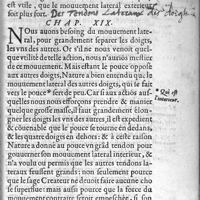 est vtile, que le mouuement lateral exterieur
soit plus fort. Des Tendons Lateraux des doigts
CHAP. XIX.
NOus auons besoing du mouuement late-
ral, pour grandement separer les doigts,
les vns des autres. Or s'il ne nous venoit quel-
que vtilité de telle action, nous n'aurions mestier
de ce mouuement. Mais estant le pouce opposé
aux autres doigts, Nature a bien entendu où met-
tre le mouuement lateral du pouce, qui se fait
vers le pouce* sera de peu. Car si aux actiõs aus-
quelles nous desirons comprendre & manier
quelque grosse masse, il faut grandement eslon-
gner les doigts les vns des autres, il est expedient
& cõmode que le pouce se tourne en dedans,
& les quatre doigts en dehors: à ceste cause
Nature a donné au pouce vn grãd tendon pour
gouuerner son mouuement lateral interieur, &
n'a voulu où permis que les autres tendons la-
teraux feussent grands: non seulement pource
que le sage Createur ne deuoit faire aucune cho-
se superflue: mais aussi pource que la force du
mouuement contraire seroit empeschée, si son
* Qui est
l'interieur.